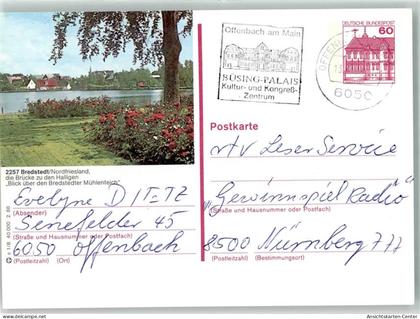 Offenbach am Main
BÜSING-PALAIS
Kultur- und Kongreß-
Zentrum
6050
DEUTSCHE BUNDESPOST
60
2257 Bredstedt/Nordfriesland,
die Brücke zu den Halligen
„Blick über den Bredstedter Mühlenteich"
Evelyne DIETZ
(Absender)
Senefelder 45
(Straße und Hausnummer oder Postfach)
6050 Offenbach
(Postleitzahl) (Ort)
Postkarte
rtv Leser Service
„Gewinnspiel Radio"
(Straße und Hausnummer oder Postfach)
8500 Nürnberg 777
(Postleitzahl) (Bestimmungsort)
© Ansichtskarten-Center